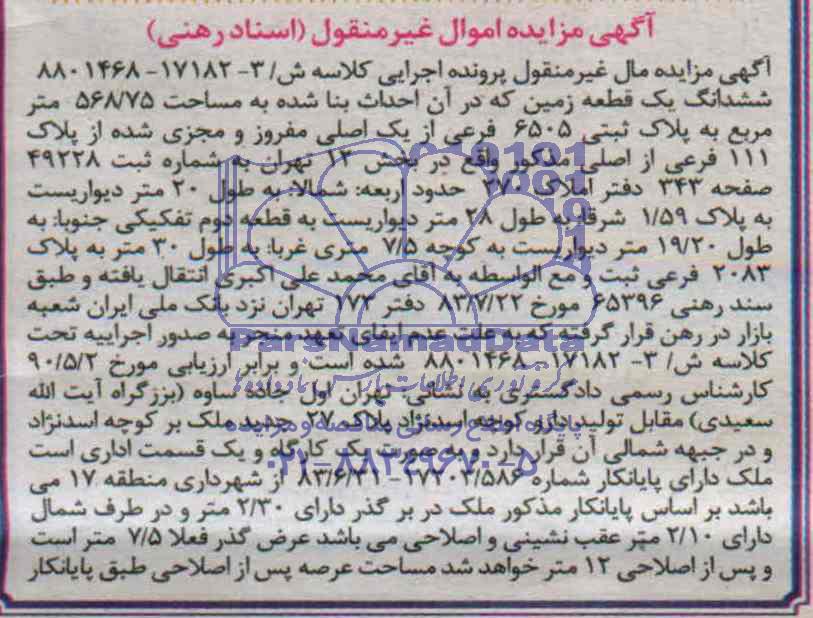 آگهی مزایده اموال غیرمنقول (اسناد رهنی)
آگهی مزایده مال غیرمنقول پرونده اجرایی کلاسه ش/ ۳- ۱۷۱۸۲- ۸۸۰۱۴۶۸
ششدانگ یک قطعه زمین که در آن احداث بنا شده به مساحت ۵۶۸/۷۵ متر
مربع به پلاک ثبتی ۶۵۰۵ فرعی از یک اصلی مفروز و مجزی شده از پلاک
۱۱۱ فرعی از اصلی مذکور واقع در بخش ۱۲ تهران به شماره ثبت ۴۹۲۲۸
صفحه ۳۴۳ دفتر املاک ۲۷۰ حدود اربعه: شمالا: به طول ۲۰ متر دیواریست
به پلاک ۱/۵۹ شرقا: به طول ۲۸ متر دیواریست به قطعه دوم تفکیکی جنوبا: به
طول ۱۹/۲۰ متر دیواریست به کوچه ۷/۵ متری غربا: به طول ۳۰ متر به پلاک
۲۰۸۳ فرعی ثبت و مع الواسطه به آقای محمد علی اکبری انتقال یافته و طبق
سند رهنی ۶۵۳۹۶ مورخ ۸۳/۷/۲۲ دفتر ۱۷۲ تهران نزد بانک ملی ایران شعبه
بازار در رهن قرار گرفته که به علت عدم ایفای تعهد منجر به صدور اجراییه تحت
کلاسه ش/ ۳- ۱۷۱۸۲- ۸۸۰۱۴۶۸ شده است و برابر ارزیابی مورخ ۹۰/۵/۲
کارشناس رسمی دادگستری به نشانی: تهران اول جاده ساوه (بزرگراه آیت الله
سعیدی) مقابل تولید دارو کوچه اسدنژاد پلاک ۲۷ جدید ملک بر کوچه اسدنژاد
و در جبهه شمالی آن قرار دارد و به صورت یک کارگاه و یک قسمت اداری است
ملک دارای پایانکار شماره ۲۷۲۰۳/۵۸۶- ۸۳/۶/۳۱ از شهرداری منطقه ۱۷ می
باشد بر اساس پایانکار مذکور ملک در بر گذر دارای ۲/۳۰ متر و در طرف شمال
دارای ۲/۱۰ متر عقب نشینی و اصلاحی می باشد عرض گذر فعلا ۷/۵ متر است
و پس از اصلاحی ۱۲ متر خواهد شد مساحت عرصه پس از اصلاحی طبق پایانکار
ParsNamadData
گروه فن آوری اطلاعات پارس نماد داده ها
پایگاه اطلاع رسانی مناقصه و مزایده
۰۲۱-۸۸۳۴۹۶۷۰-۵